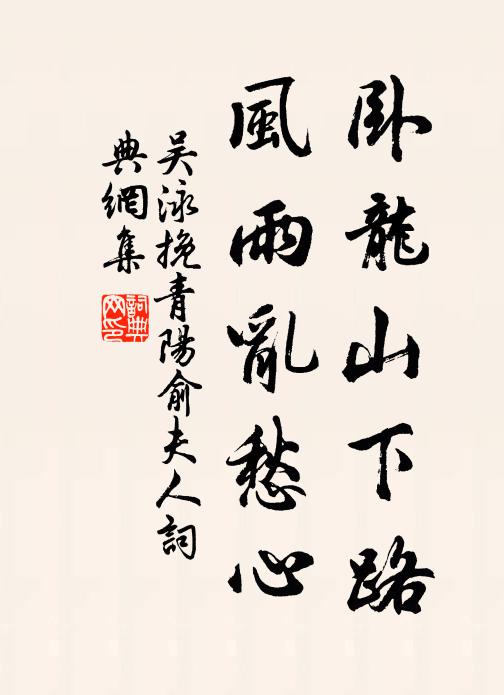 卧龍山下路
風雨亂愁心
吴泳挽青陽俞夫人詞
典網集
詞典
网印